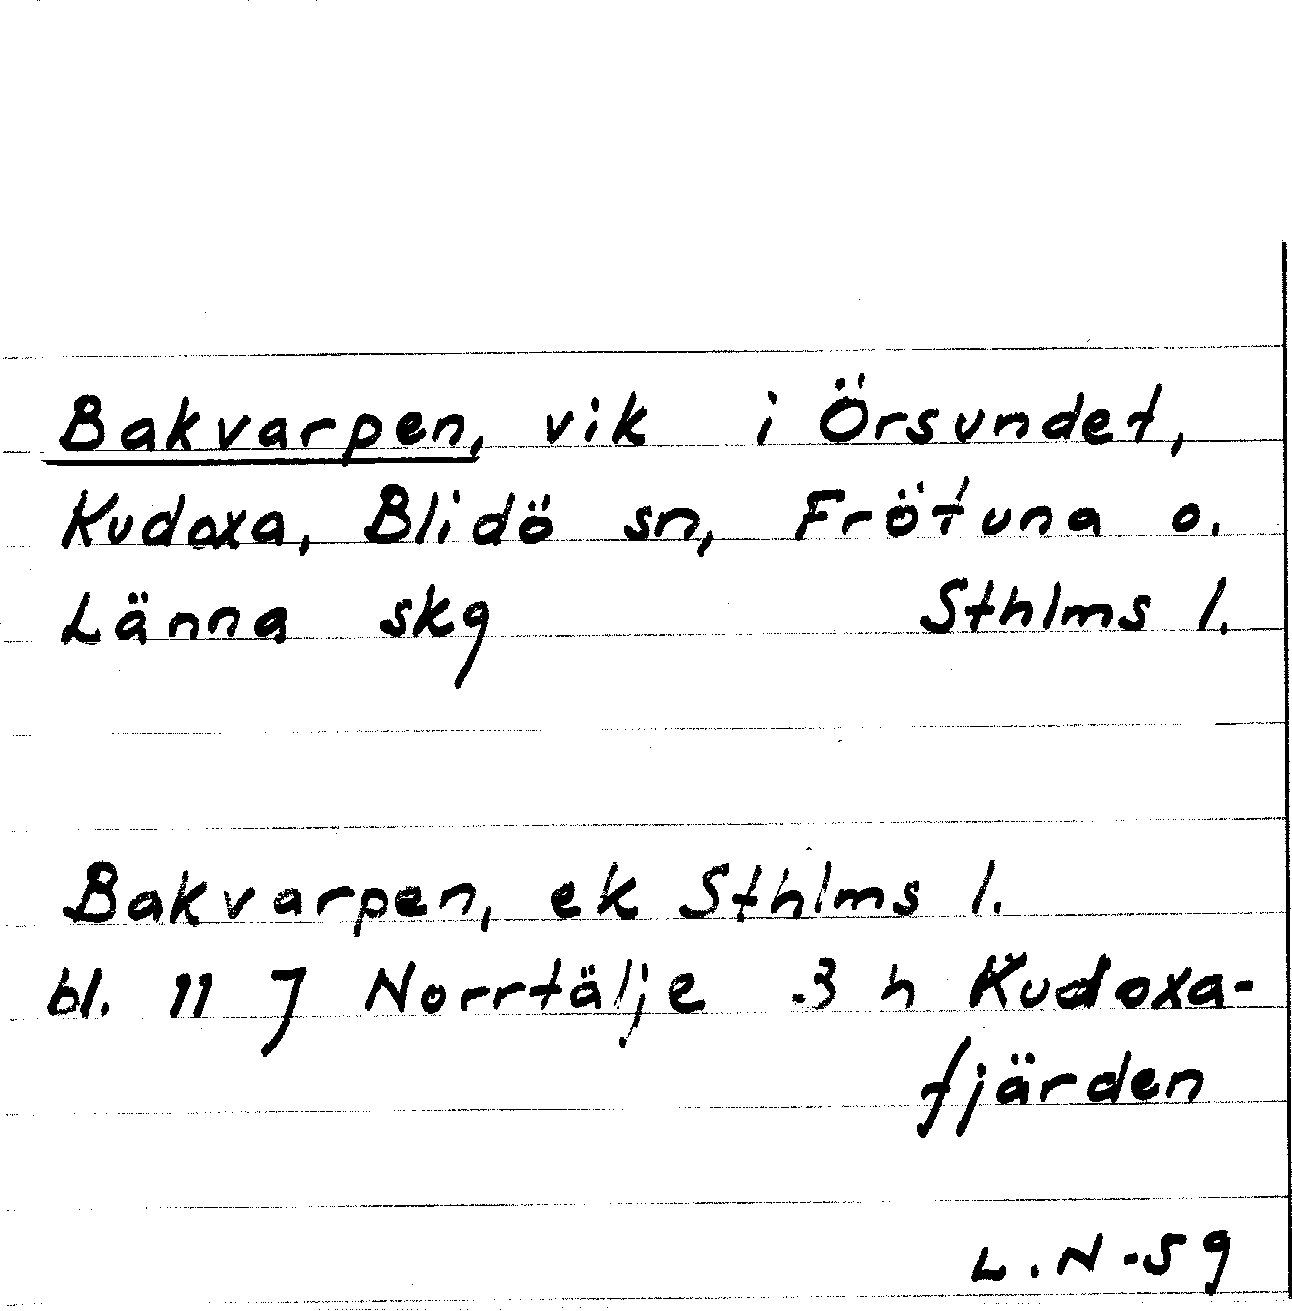 Bakvarpen, vik i Örsundet,
Kudoxa, Blidö sn, Frötuna o.
Länna skg Sthlms l.
Bakvarpen, ek Sthlms l.
bl. 11 J Norrtälje 3 h Kudoxa-
fjärden
L.N-59